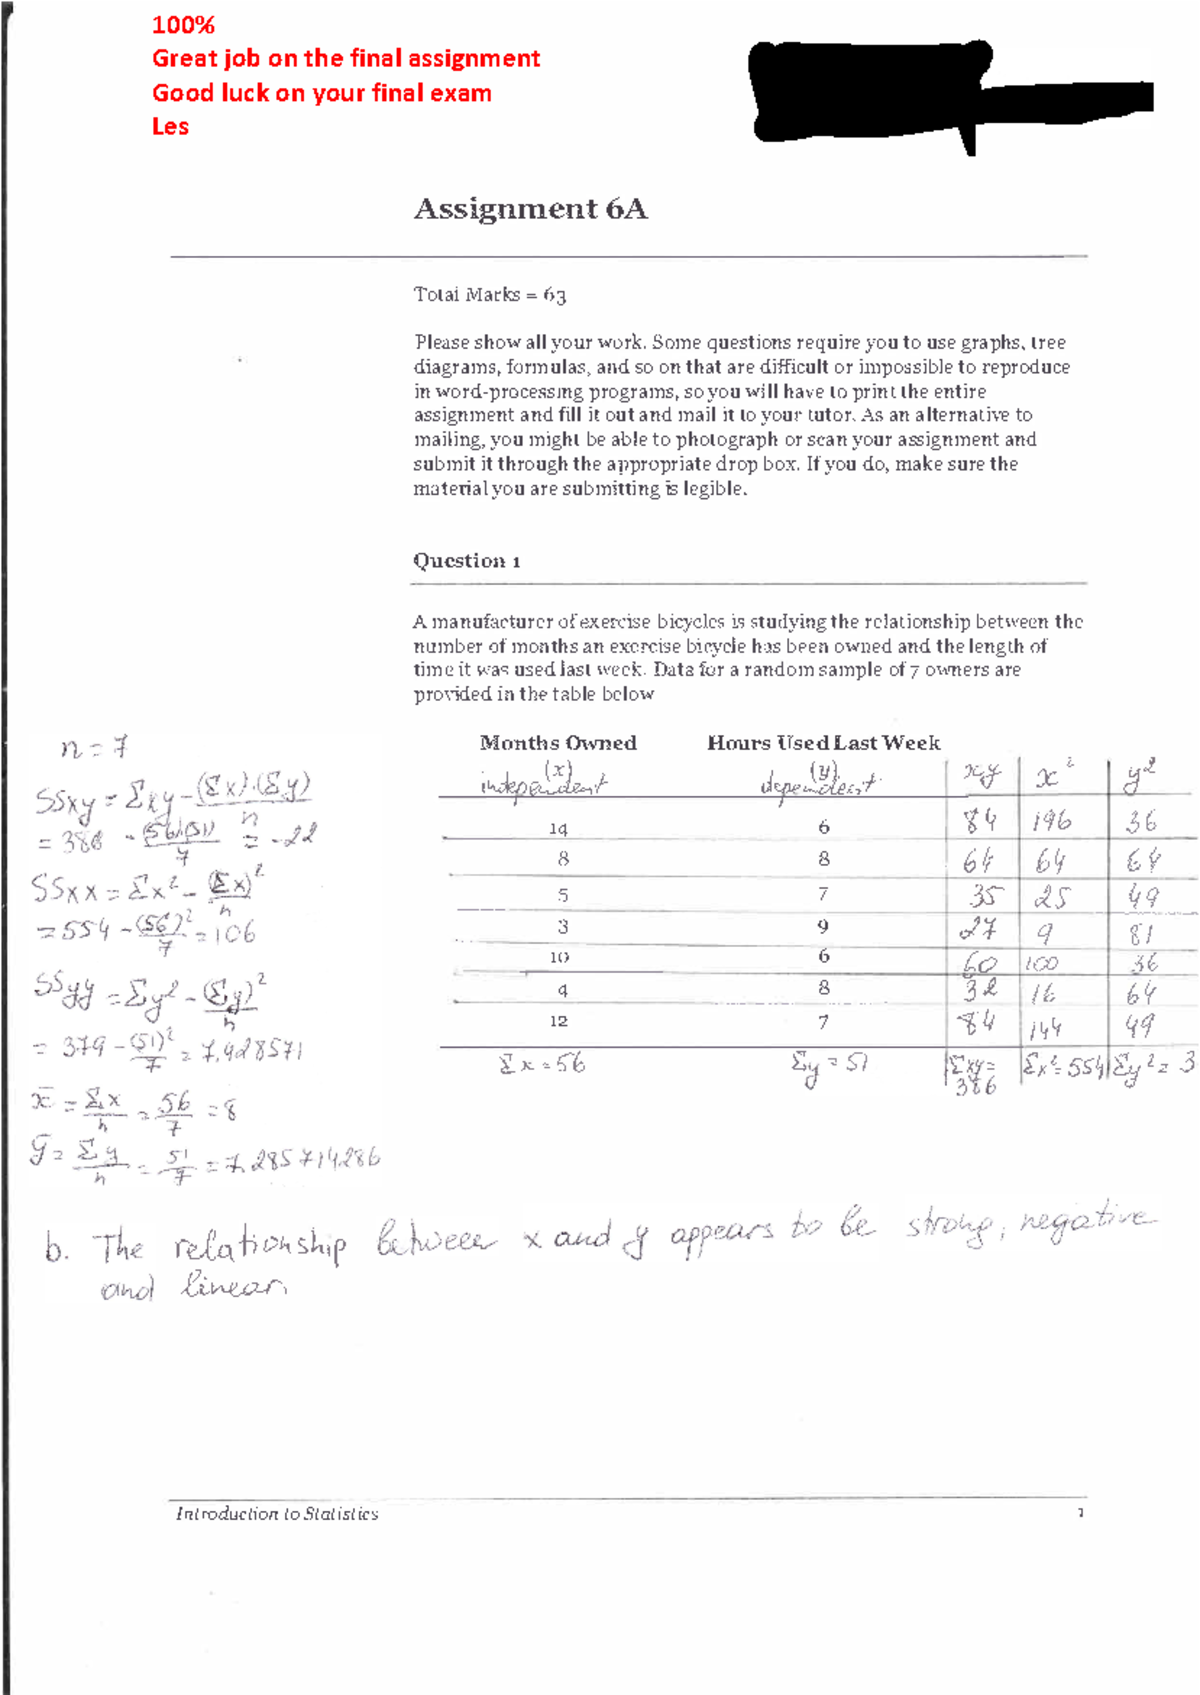 100%
Great job on the final assignment
Good luck on your final exam
Les
Assignment 6A
Total Marks = 63
Please show all your work. Some questions require you to use graphs, tree
diagrams, formulas, and so on that are difficult or impossible to reproduce
in word-processing programs, so you will have to print the entire
assignment and fill it out and mail it to your tutor. As an alternative to
mailing, you might be able to photograph or scan your assignment and
submit it through the appropriate drop box. If you do, make sure the
material you are submitting is legible.
Question 1
A manufacturer of exercise bicycles is studying the relationship between the
number of months an exercise bicycle has been owned and the length of
time it was used last week. Data for a random sample of 7 owners are
provided in the table below
Months Owned Hours Used Last Week
(x) (y)
independent dependent xy x² y²
14 6 84 196 36
8 8 64 64 64
5 7 35 25 49
3 9 27 9 81
10 6 60 100 36
4 8 32 16 64
12 7 84 144 49
Σx = 56 Σy = 51 Σxy = 386 Σx² = 554 Σy² = 3
n = 7
SSxy = Σxy - (Σx)·(Σy)/n
= 386 - (56)(51)/7 = -22
SSxx = Σx² - (Σx)²/n
= 554 - (56)²/7 = 106
SSyy = Σy² - (Σy)²/n
= 379 - (51)²/7 = 7.428571
x̄ = Σx/n = 56/7 = 8
ȳ = Σy/n = 51/7 = 7.285714286
b. The relationship between x and y appears to be strong, negative
and linear.
Introduction to Statistics 1